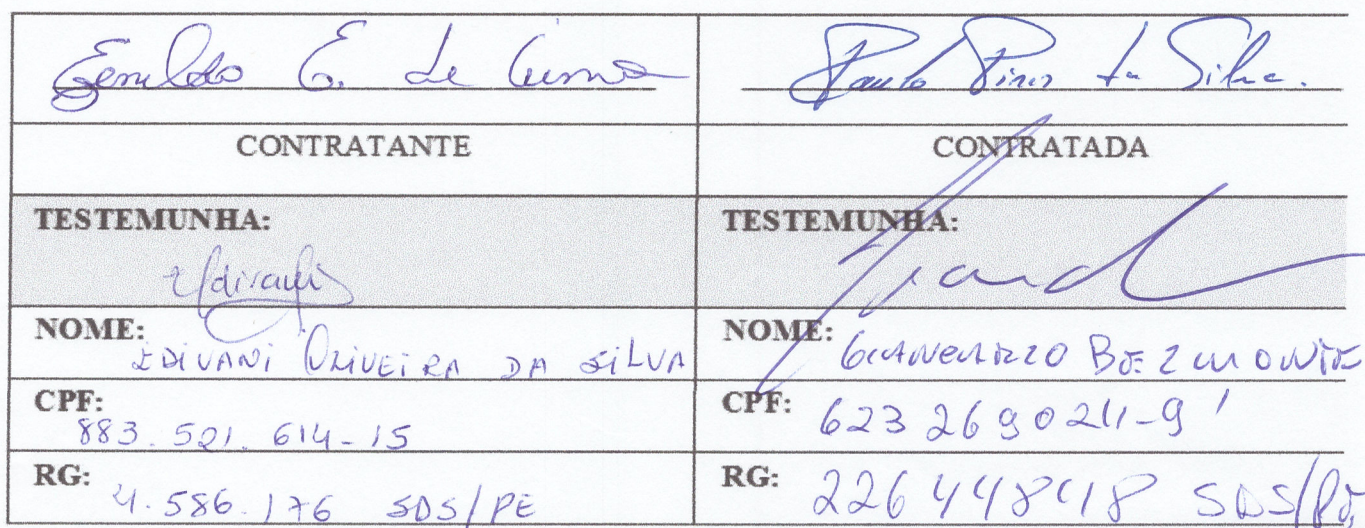 Genildo E. de Lima Paulo Pires da Silva.
CONTRATANTE CONTRATADA
TESTEMUNHA: TESTEMUNHA:
Edivani
NOME: EDIVANI OLIVEIRA DA SILVA NOME: BEZMONTE
CPF: 883.521.614-15 CPF: 623 269 024-91
RG: 4.586.176 SDS/PE RG: SDS/PE